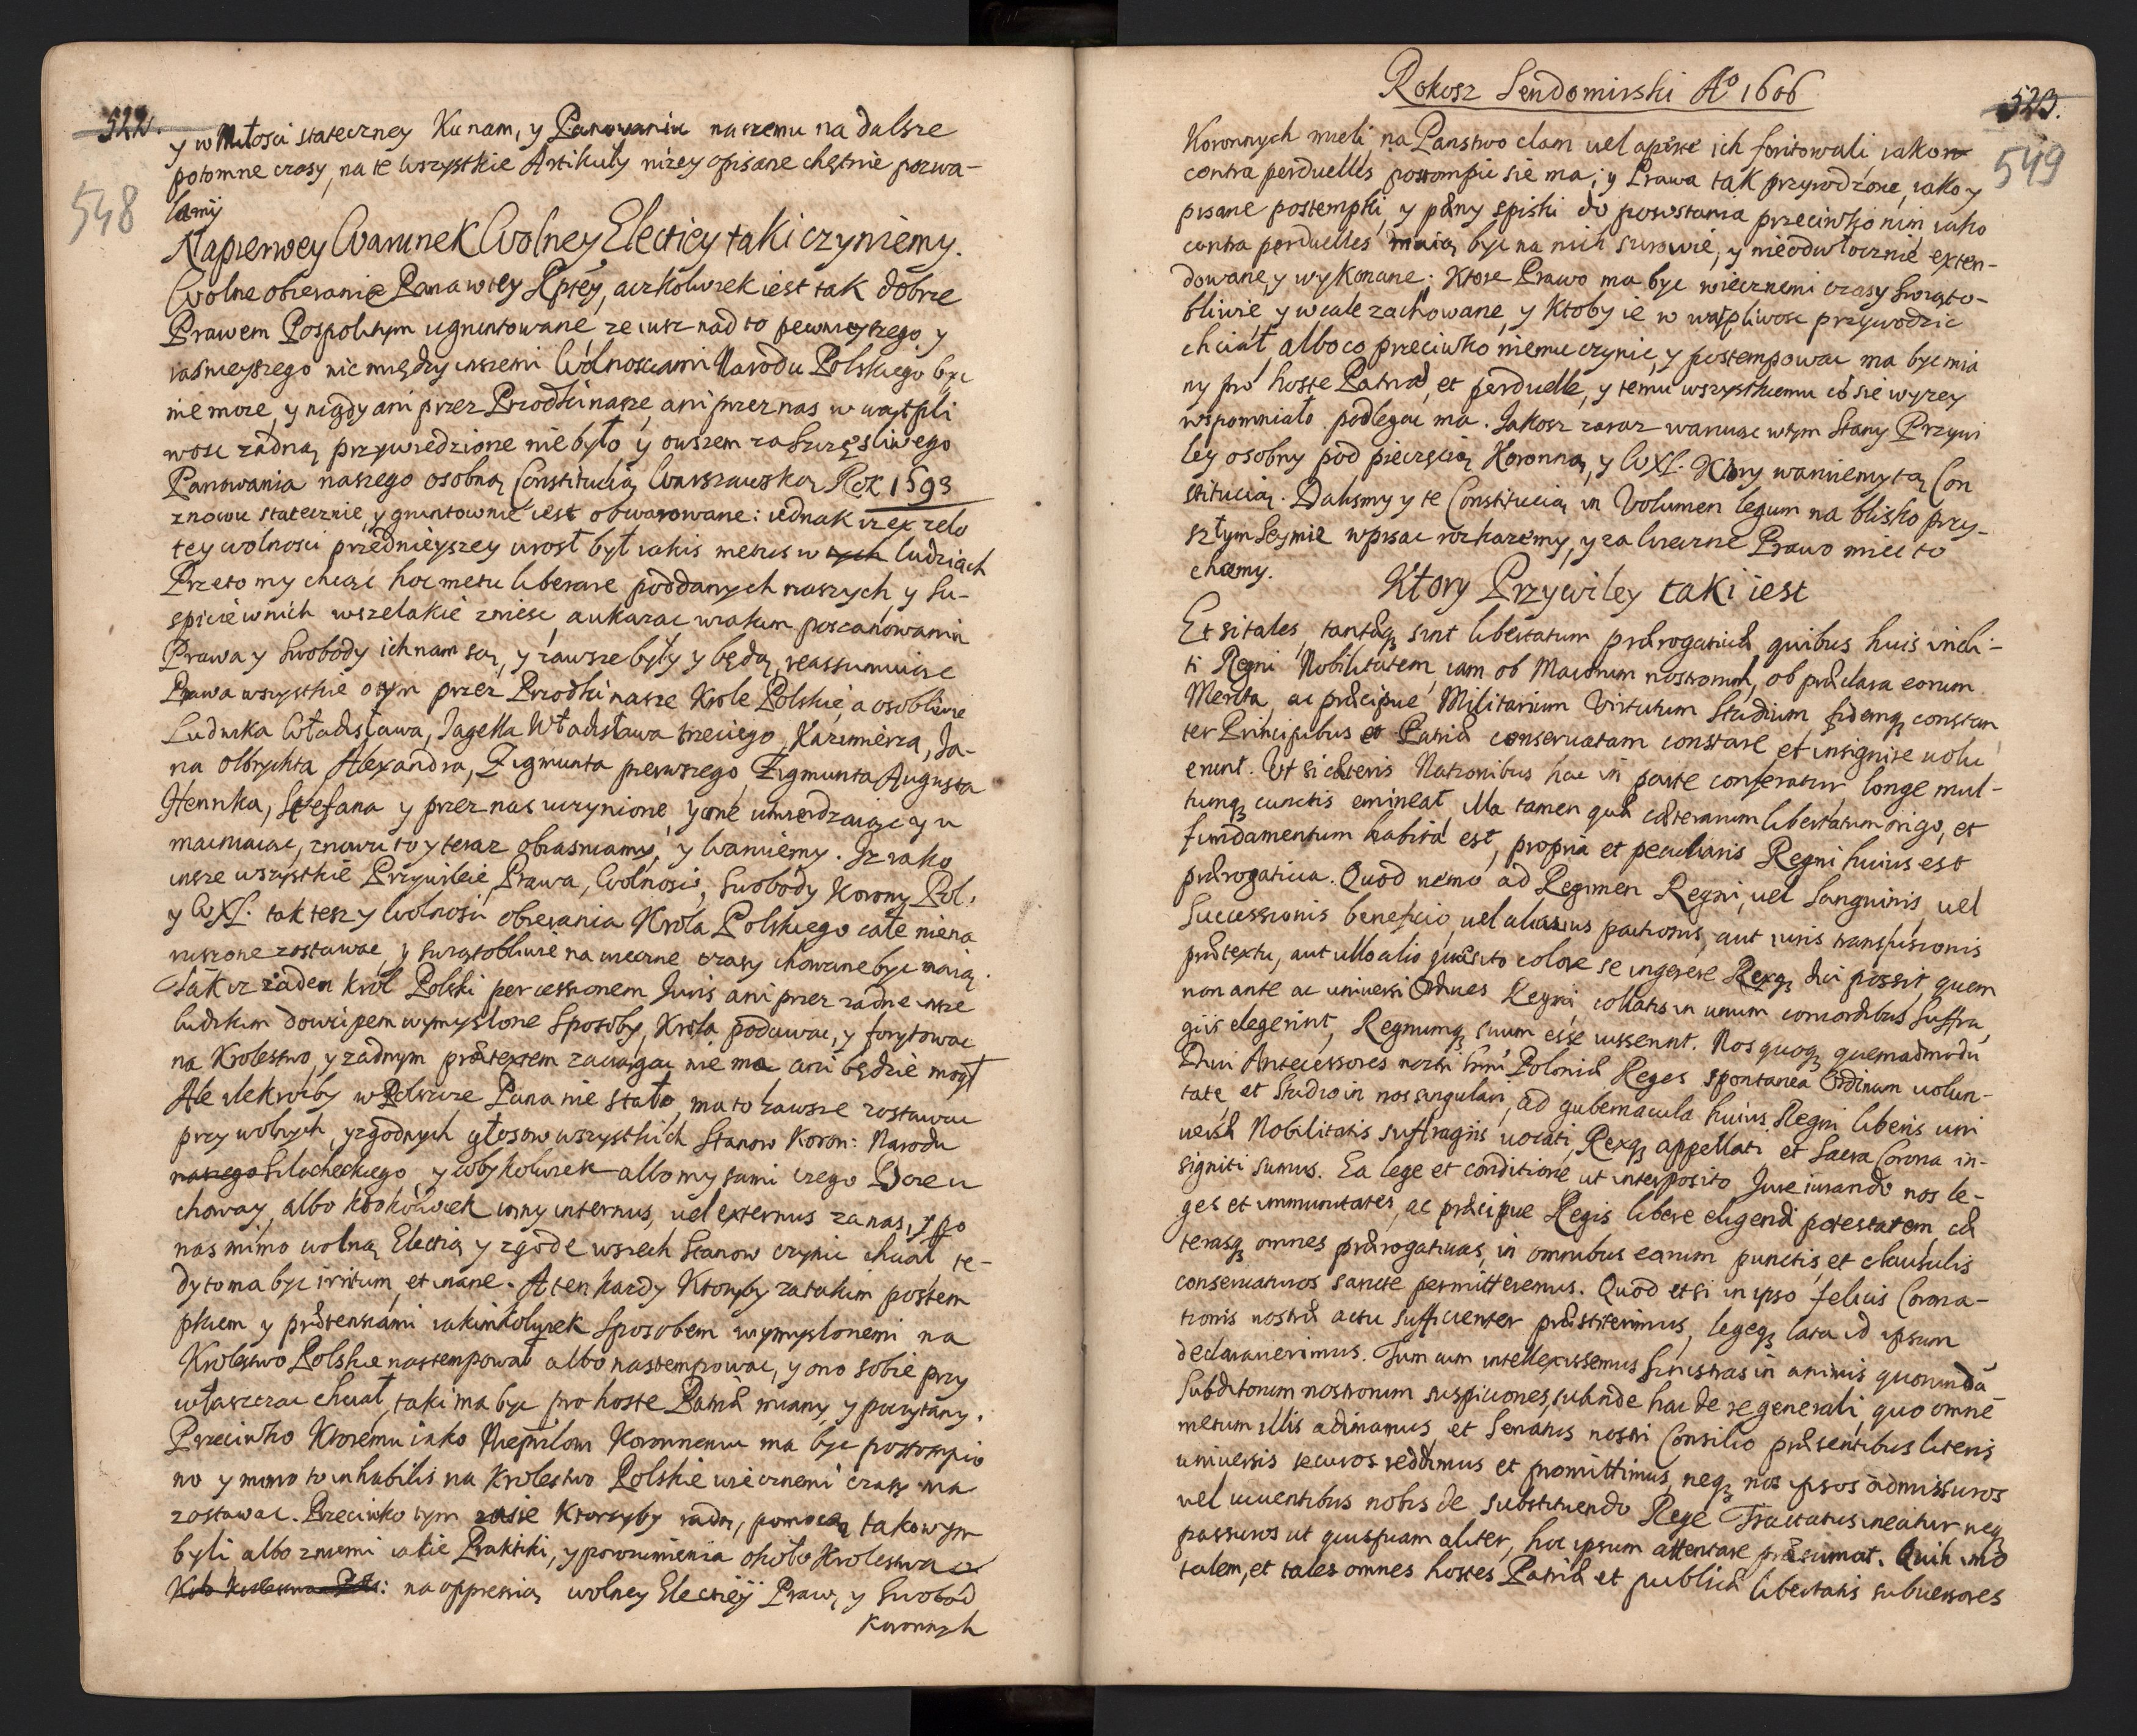 522.
548
y w Miłosci stateczney Ku nam, y Panowaniu naszemu na dalsze
potomne czasy, na te wszystkie Artikuły nizey opisane chętnie pozwa-
lamÿ
Napierwey Warunek Wolney Electiey taki czyniemy.
Wolne obieranie Pana w tey Rptey, aczkolwiek iest tak dobrze
Prawem Pospolitym ugruntowane, ze iusz nad to pewnieyszego y
iasnieyszego nic między inszemi Wolnosciami Narodu Polskiego byc
nie moze, y nigdy ani przez Przodki nasze, ani przez nas w wątpli
wosc zadną przywiedzione nie było, y owszem za Szczęsliwego
Panowania naszego osobną Constitucią Warszawską Rok 1593
znowu statecznie, y gruntownie iest obwarowane: iednak iz ex zelo
tey wolnosci przednieyszey urosł był iakis metus w tych ludziach
Przeto my chcąc hoc metu liberare poddanych naszych, y Su-
spicie w nich wszelakie zniesc, a ukazac w iakim poszanowaniu
Prawa y Swobody ich nam są, y zawsze były y będą, reassumuiąc
Prawa wszystkie o tym przez Przodki nasze Krole Polskie, a osobliwie
Ludwika Władisława, Jagella Władisława trzeciego, Kazimierza, Ja-
na Olbrychta Alexandra, Zigmunta pierwszego, Zigmunta Augusta
Henrika, Stefana y przez nas uczynione, y one utwierdzaiąc y u
macniaiąc, znowu to y teraz obiasniamy, y waruiemy. Jz iako
insze wszystkie Przywileie, Prawa, Wolnosci, Swobody Korony Pol.
y WXL. tak tesz y wolnosci obierania Krola Polskiego całe niena
ruszone zostawac, y swiątobliwie na wieczne czasy chowane byc maią.
Tak iz żaden Krol Polski per cessionem Juris ani przez zadne insze
ludzkim dowcipem wymyslone Sposoby, Krola podawac, y forytowac
na Krolestwo, y zadnym prætextem zaciągac nie ma ani będzie mogł
Ale ilekrocby w Polszcze Pana nie stało, ma to zawsze zostawac
przy wolnych, y zgodnych głosow wszystkich Stanow Koron: Narodu
naszego Szlacheckiego, y cobykolwiek albo my sami czego Boze u
choway, albo ktokolwiek inny internus, vel externus za nas, y po
nas mimo wolną Electią y zgodę wszech Stanow czynic chciał te-
dy to ma byc irritum, et inane. A ten kazdy Ktoryby za takim postem
pkiem y prætensiami iakimkolwiek Sposobem wymyslonemi na
Krolestwo Polskie nastempował albo nastempowac, y ono sobie przy
właszczac chciał, taki ma byc pro hoste Patriæ miany y poczytany.
Przeciwko Ktoremu iako Nieprilowi Koronnemu ma byc postompio
no y mimo to inhabilis na Krolestwo Polskie wiecznemi czasy ma
zostawac. Przeciwko tym zasie Ktorzyby radą, pomocą takowym
byli albo z niemi iakie Praktiki, y porozumienia około Krolestwa
na oppressią wolney Electieÿ Praw, y Swobod
Koronnych
Rokosz Sendomirski Aº 1606
523.
549
Koronnych mieli na Panstwo clam vel aperte ich foritowali iako
contra perduelles postompic sie ma; y Prawa tak przywodzone, iako y
pisane postempki, y pæny spiski do powstania przeciwko nim iako
contra perduelles maią byc na nich surowie, y nieodwłocznie exten-
dowane, y wykonane; Ktore Prawo ma byc wiecznemi czasy swiąto-
bliwie y wcale zachowane, y Ktoby ie w wątpliwosc przywodzic
chciał, albo co przeciwko niemu czynic, y postempowac ma byc mia
ny pro hoste Patriæ, et perduelle, y temu wszystkiemu co sie wyzey
wspomniało podlegac ma. Jakosz zaraz waruiąc w tym Stany Przywi
ley osobny pod pieczęcią Koronną, y WXL. Ktory waruiemy tą Con
stitucią. Dalismy y te Constitucią in Volumen legum na blisko przy-
szłym Seymie wpisac rozkazemy, y za wieczne Prawo miec to
chcemy.
Ktory Przywiley taki iest
Etsi tales, tantæq sint libertatum prærogativæ quibus huis incli-
ti Regni Nobilitatem, iam ob Maiorum nostrorum, ob præclara eorum
Merita, ac præcipue Militarium Virtutum Studium, fidemq constan
ter Principibus et Patriæ conservatam constare et insignire volu
erunt. Ut si cæteris Nationibus hac in parte conferatur longe mul-
tumq cunctis emineat, illa tamen quæ cæterarum libertatum origo, et
fundamentum habita est, propria et peculiaris Regni huius est
prærogativa. Quod nemo ad Regimen Regni, vel Sanguinis, vel
Successionis beneficio, vel alicuius pactionis, aut iuris transfusionis
prætextu, aut ullo alio quæsito colore se ingerere Rexq dici possit quem
non ante ac universi Ordines Regni, collatis in unum concordibus suffra
giis elegerint, Regnumq suum esse iusserint. Nos quoq quemadmodū
Divi Antecessores nostri Poloniæ Reges spontanea Ordinum volun-
tate, et Studio in nos singulari, ad gubernacula huius Regni liberis uni
versæ Nobilitatis suffragiis vocati, Rexq appellati et Sacra Corona in-
signiti sumus. Ea lege et conditione ut interposito Jure iurando nos le-
ges et immunitates, ac præcipue Regis libere eligendi potestatem, cæ
terasq omnes prærogativas, in omnibus earum punctis, et clausulis
conservaturos sancte permitteremus. Quod etsi in ipso felicis Corona-
tionis nostræ actu sufficienter præstiterimus, legeq lata id ipsum
declaraverimus. Tum cum intellexissemus sinistras in animis quorundā
Subditorum nostrorum suspiciones, subinde hac de re generali, quo omnē
metum illis adimamus, et Senatus nostri Consilio præsentibus literis
universis securos reddimus et promittimus, neq nos ipsos admissuros
vel viventibus nobis de substituendo Rege Tractatus ineatur neq
passuros ut quispiam aliter, hoc ipsum attentare præsumat. Quin imo
talem, et tales omnes hostes Patriæ et publicæ libertatis subversores